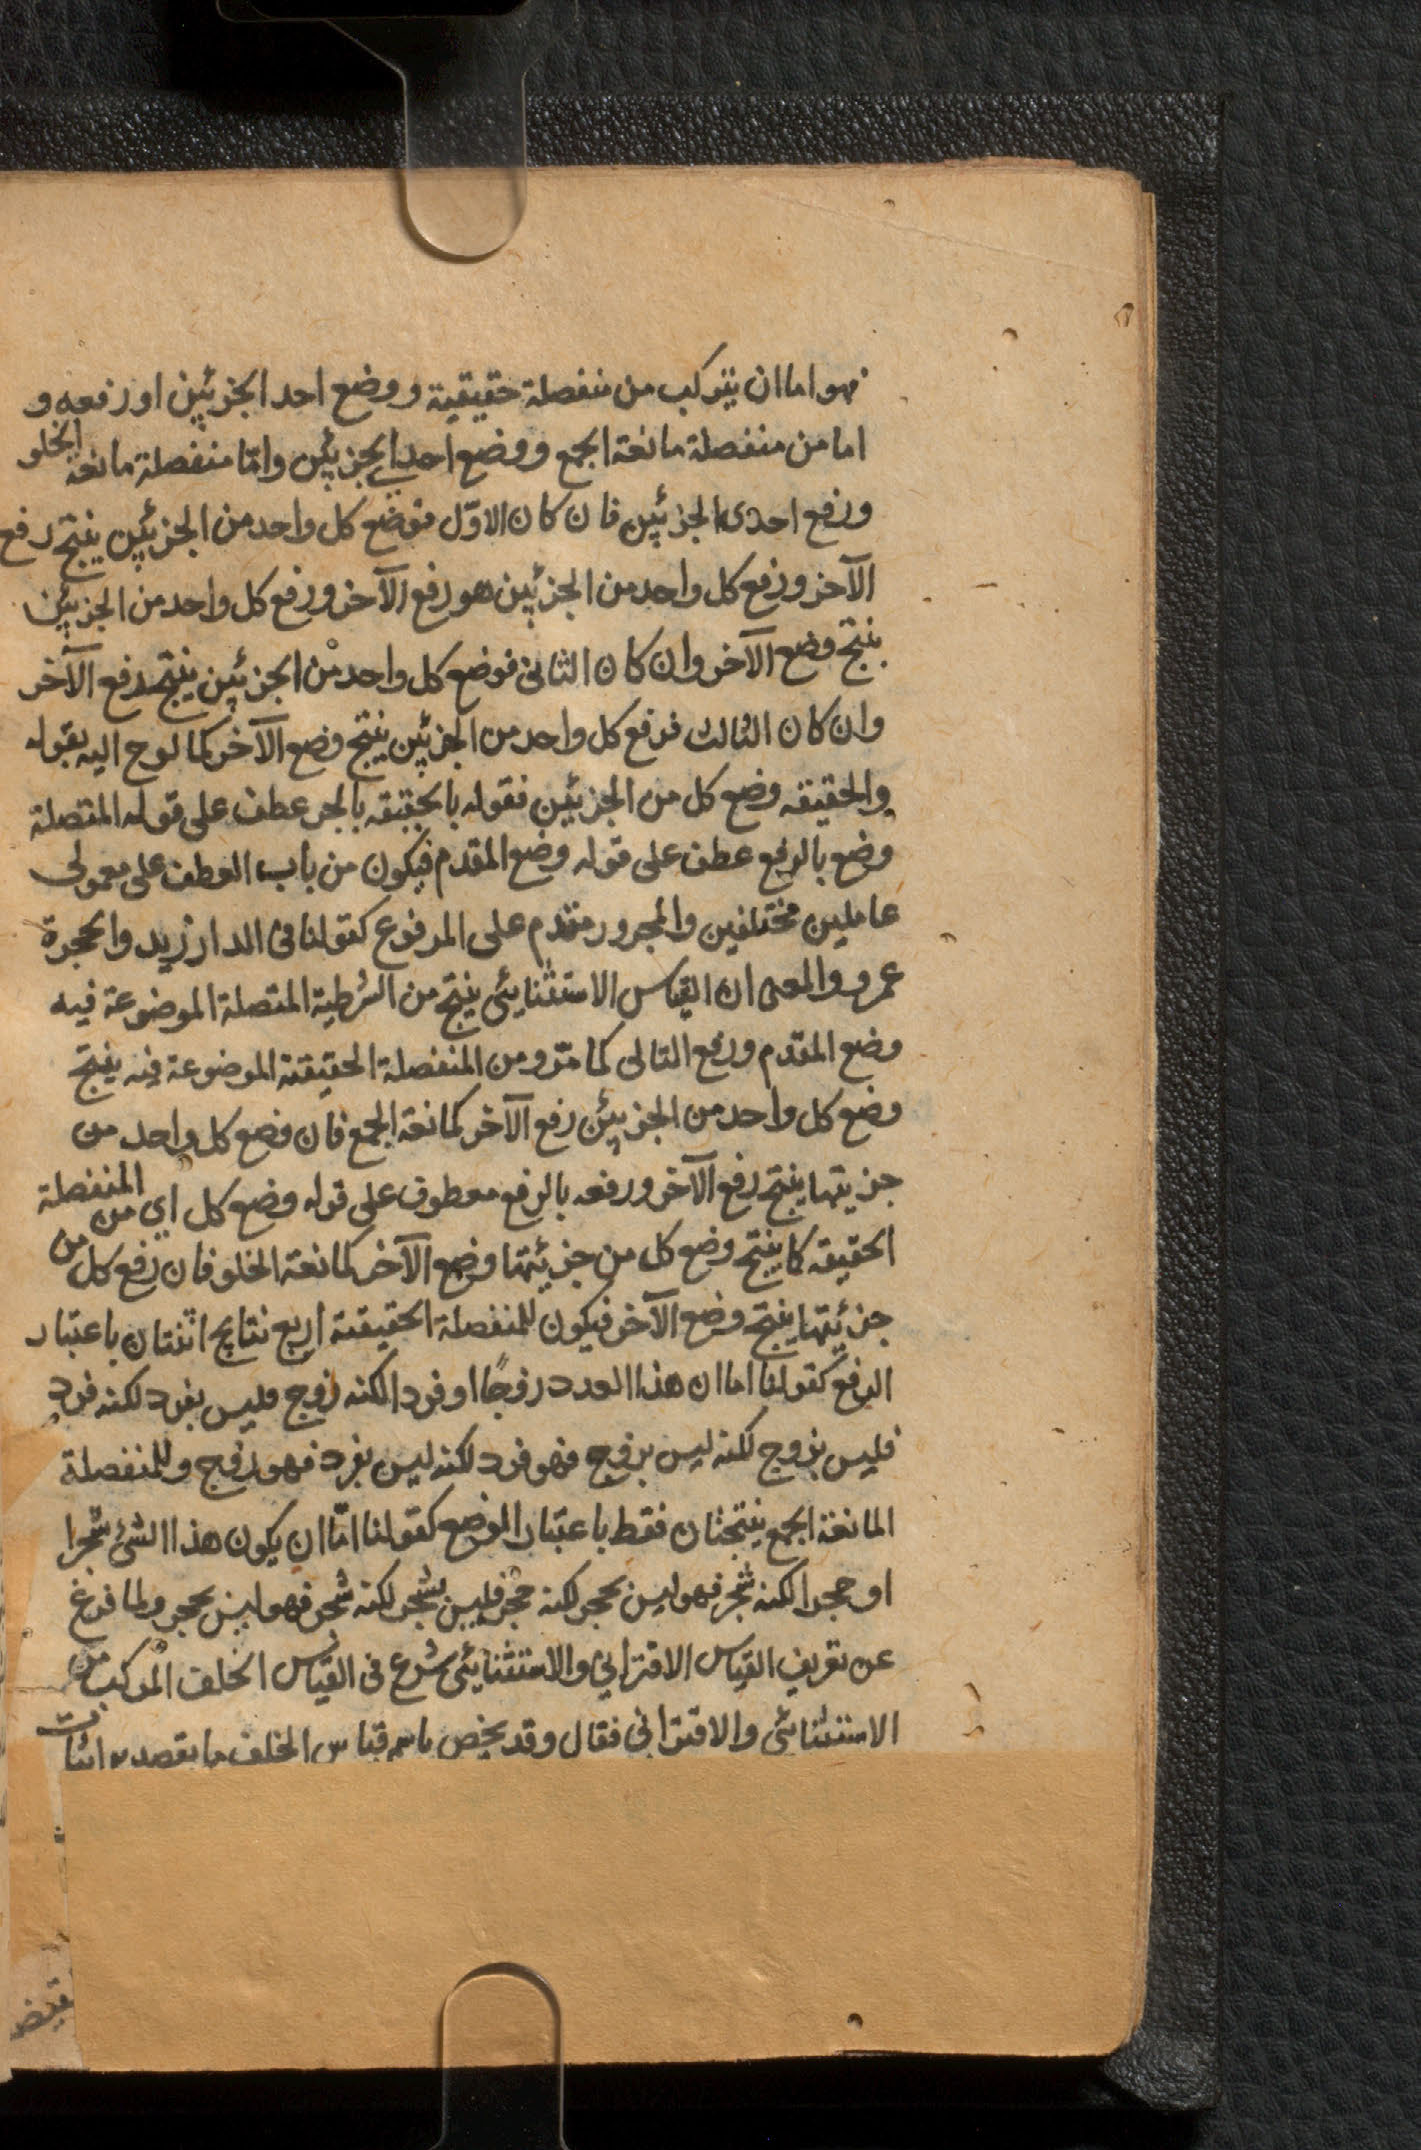 فهو اما ان يتركب من منفصلة حقيقية ووضع احد الجزئين او رفعه و
اما من منفصلة مانعة الجمع ووضع احد الجزئين وامّا منفصلة مانعة الخلو
ورفع احدى الجزئين فان كان الاوّل فوضع كل واحد من الجزئين ينتج رفع
الآخر ورفع كل واحد من الجزئين هو رفع الآخر ورفع كل واحد من الجزئين
ينتج وضع الآخر وان كان الثانى فوضع كل واحد من الجزئين ينتج رفع الآخر
وان كان الثالث فرفع كل واحد من الجزئين ينتج وضع الآخر كما لوح اليه بقوله
والحقيقه وضع كل من الجزئين فقوله بالحقيقه بالجر عطف على قوله المتصلة
وضع بالرفع عطف على قوله وضع المقدم فيكون من باب العطف على معمولى
عاملين مختلفين والمجرور مقدم على المرفوع كقولنا فى الدار زيد والحجرة
عمرو والمعنى ان القياس الاستثنايئى ينتج من الشرطية المتصلة الموضوعة فيه
وضع المقدم ورفع التالى كما مرّ ومن المنفصلة الحقيقية الموضوعة فيه ينتج
وضع كل واحد من الجزيئن رفع الآخر كمانعة الجمع فان وضع كل واحد من
جزيتها ينتج رفع الآخر ورفعه بالرفع معطوف على قوله وضع كل اي من المنفصلة
الحقيقه كما ينتج وضع كل من جزئيتها وضع الآخر كمانعة الخلو فان رفع كل من
جزئيتها ينتج وضع الآخر فيكون للمنفصلة الحقيقية اربع نتايج اثنتان باعتبار
الرفع كقولنا اما ان هذا العدد زوجًا او فردا لكنه زوج فليس بفرد لكنه فرد
فليس بزوج لكنه ليس بزوج فهو فرد لكنه ليس بفرد فهو زوج وللمنفصلة
المانعة الجمع ينتجتان فقط باعتبار الوضع كقولنا امّا ان يكون هذا الشئ شجرا
او حجرا لكنه شجر فهو ليس بحجر لكنه حجر فليس بشجر لكنه شجر فهو ليس بحجر ولما فرغ
عن تعريف القياس الاقترانى والاستثنايئى شرع فى القياس الخلف المركب من
الاستثنائى والاقترانى فقال وقد يخص باسم قياس الخلف ما يقصد به اثبات